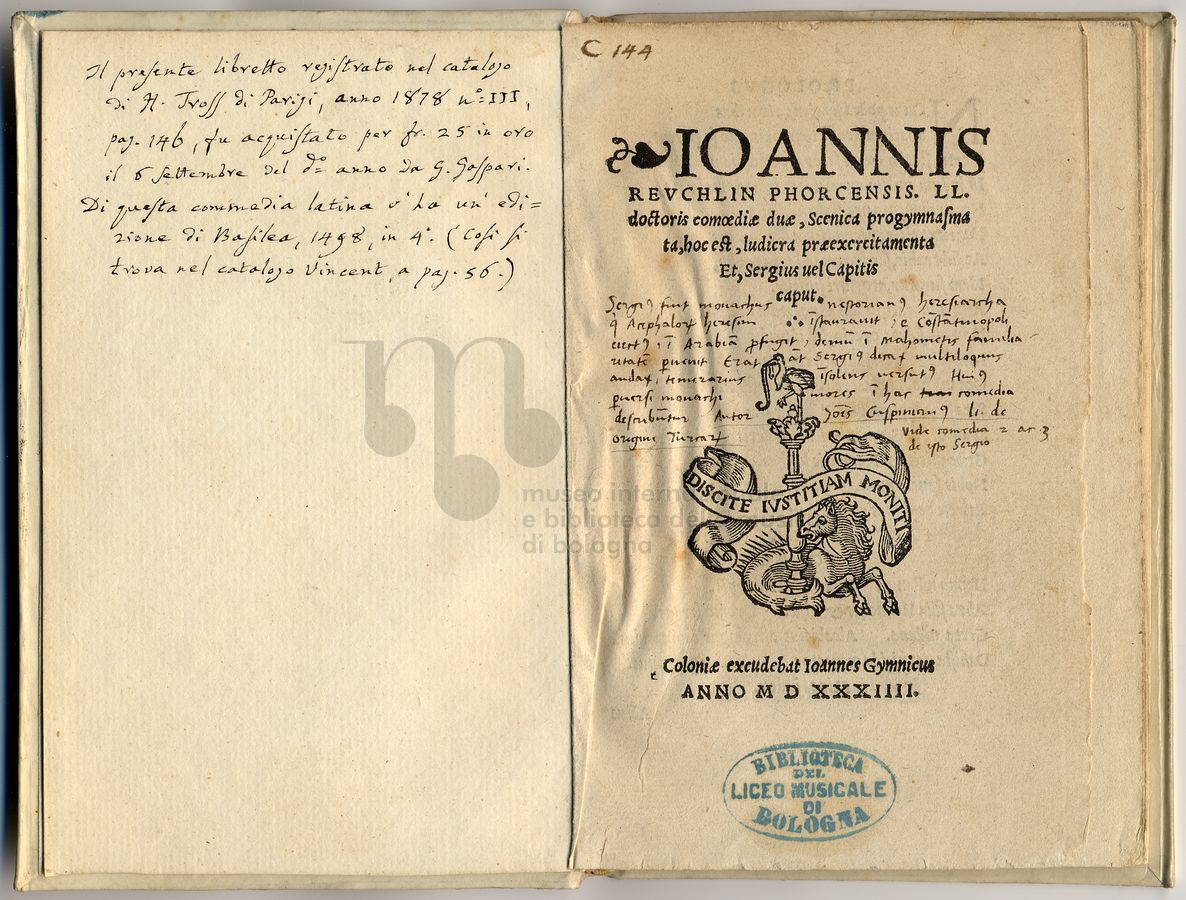 Il presente libretto registrato nel catalogo
di H. Tross di Parigi, anno 1878 nº=III,
pag. 146, fu acquistato per fr. 25 in oro
il 6 Settembre del dº= anno da G. Gaspari.
Di questa commedia latina v'ha un'edi=
zione di Basilea, 1498, in 4º. (Così si
trova nel catalogo Vincent, a pag. 56.)
museo interna
e biblioteca del
di bologna
C 144
IOANNIS
REVCHLIN PHORCENSIS. LL.
doctoris comœdiæ duæ, Scenica progymnasma
ta, hoc est, ludicra præexercitamenta
Et, Sergius uel Capitis
caput.
Sergiꝰ fuit monachus nestorianꝰ heresiarcha
heresim istauravit, e Cōstātinopoli
ī Arabiā ꝓfugit, demū ī Mahometis familia
ritatē ꝑvenit Erat āt Sergiꝰ dicax multiloquus
audax, temerarius īsolens versutꝰ Huiꝰ
ꝑversi monachi mores ī hac comedia
describūtur Autor Joēs Cuspinianꝰ li. de
origine Turcarꝝ
Vide comedia 2 ac 3
de isto Sergio
DISCITE IVSTITIAM MONITI
Coloniæ excudebat Ioannes Gymnicus
ANNO M D XXXIIII.
BIBLIOTECA
DEL
LICEO MUSICALE
DI
BOLOGNA